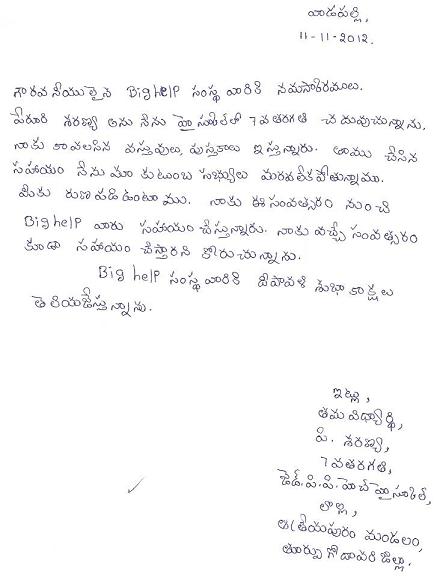 వాడపల్లి,
11-11-2012.
గౌరవనీయులైన Big help సంస్థ వారికి నమస్కారములు.
పేరూరి శరణ్య అను నేను హైస్కూల్‌లో 7వతరగతి చదువుచున్నాను.
నాకు కావలసిన వస్తువులు, పుస్తకాలు ఇస్తున్నారు. తాము చేసిన
సహాయం నేను మా కుటుంబ సభ్యులు మరువలేకపోతున్నాము.
మీకు రుణపడి ఉంటాము. నాకు ఈ సంవత్సరం నుంచి
Big help వారు సహాయం చేస్తున్నారు. నాకు వచ్చే సంవత్సరం
కూడా సహాయం చేస్తారని కోరుచున్నాను.
Big help సంస్థ వారికి దీపావళి శుభాకాంక్షలు
తెలియజేస్తున్నాను.
ఇట్లు,
తమ విద్యార్థి,
పి. శరణ్య,
7వతరగతి,
జెడ్.పి.పి.హెచ్ హైస్కూల్,
లొల్ల,
ఆత్రేయపురం మండలం,
తూర్పు గోదావరి జిల్లా.